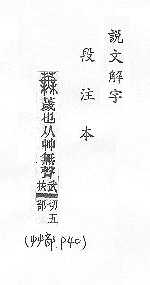 說文解字
段注本
蕪薉也从艸無聲武扶切五部
(艸部. P40)